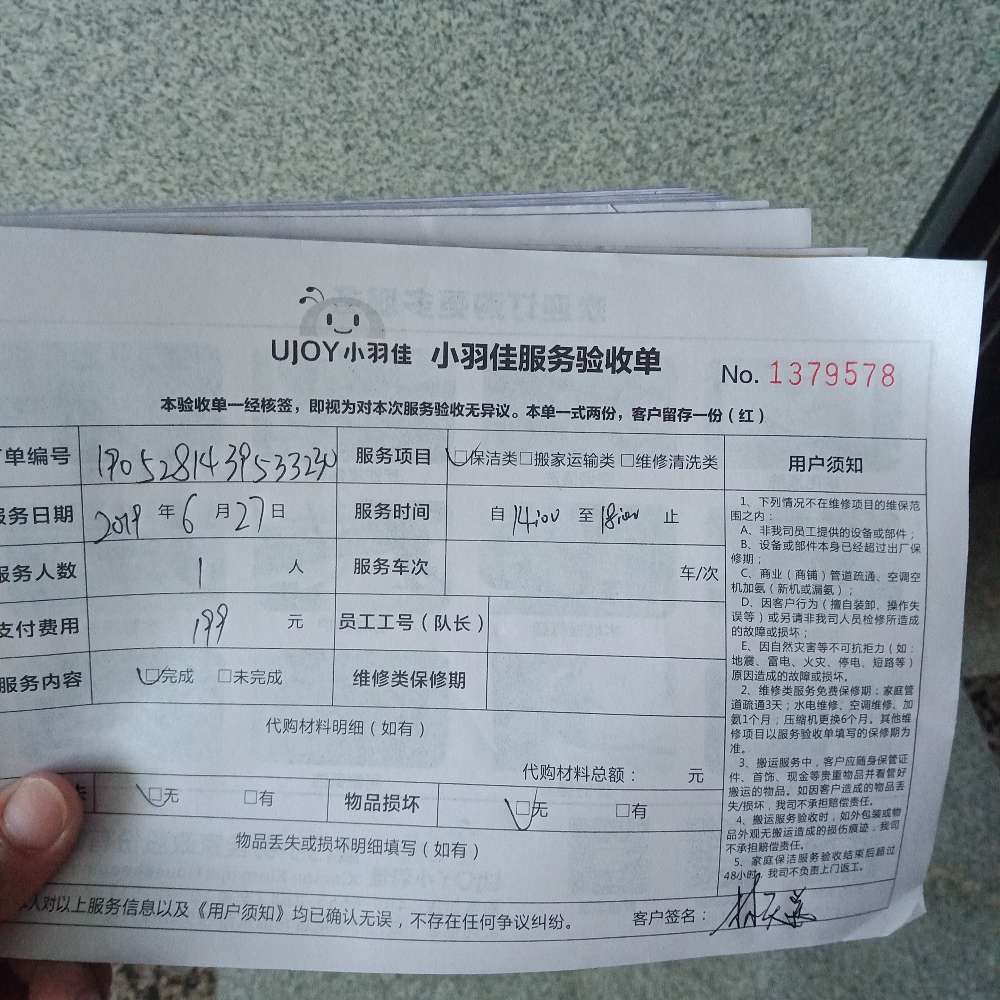 UJOY小羽佳 小羽佳服务验收单 No. 1379578
本验收单一经核签，即视为对本次服务验收无异议。本单一式两份，客户留存一份（红）
单编号 1905281439533230 服务项目 □保洁类□搬家运输类 □维修清洗类
服务日期 2019 年 6 月 27 日 服务时间 自 14:00 至 18:00 止
服务人数 1 人 服务车次 车/次
支付费用 199 元 员工工号（队长）
服务内容 □完成 □未完成 维修类保修期
代购材料明细（如有）
代购材料总额： 元
□无 □有 物品损坏 □无 □有
物品丢失或损坏明细填写（如有）
人对以上服务信息以及《用户须知》均已确认无误，不存在任何争议纠纷。 客户签名：
用户须知
1、下列情况不在维修项目的维保范
围之内：
A、非我司员工提供的设备或部件；
B、设备或部件本身已经超过出厂保
修期；
C、商业（商铺）管道疏通、空调空
机加氨（新机或漏氨）；
D、因客户行为（擅自装卸、操作失
误等）或另请非我司人员检修所造成
的故障或损坏；
E、因自然灾害等不可抗拒力（如：
地震、雷电、火灾、停电、短路等）
原因造成的故障或损坏。
2、维修类服务免费保修期：家庭管
道疏通3天；水电维修、空调维修、加
氨1个月；压缩机更换6个月。其他维
修项目以服务验收单填写的保修期为
准。
3、搬运服务中，客户应随身保管证
件、首饰、现金等贵重物品并看管好
搬运的物品。如因客户造成的物品丢
失/损坏，我司不承担赔偿责任。
4、搬运服务验收时，如外包装或物
品外观无搬运造成的损伤痕迹，我司
不承担赔偿责任。
5、家庭保洁服务验收结束后超过
48小时，我司不负责上门返工。